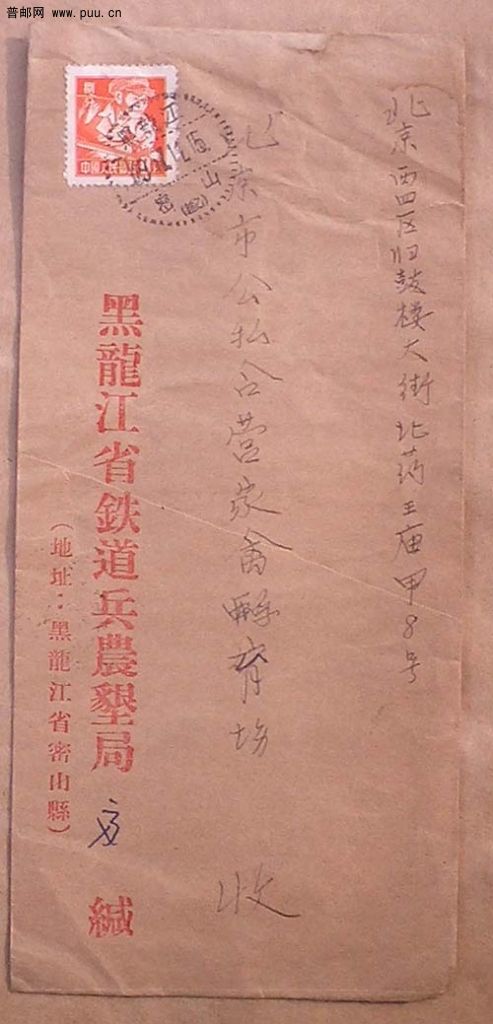 普邮网 www.puu.cn
北京西四区旧鼓楼大街北药王庙甲8号
北京市公私合营家禽孵育场
收
黑龍江省鉄道兵農墾局
緘
(地址:黑龍江省密山縣)
黑龙江
密山